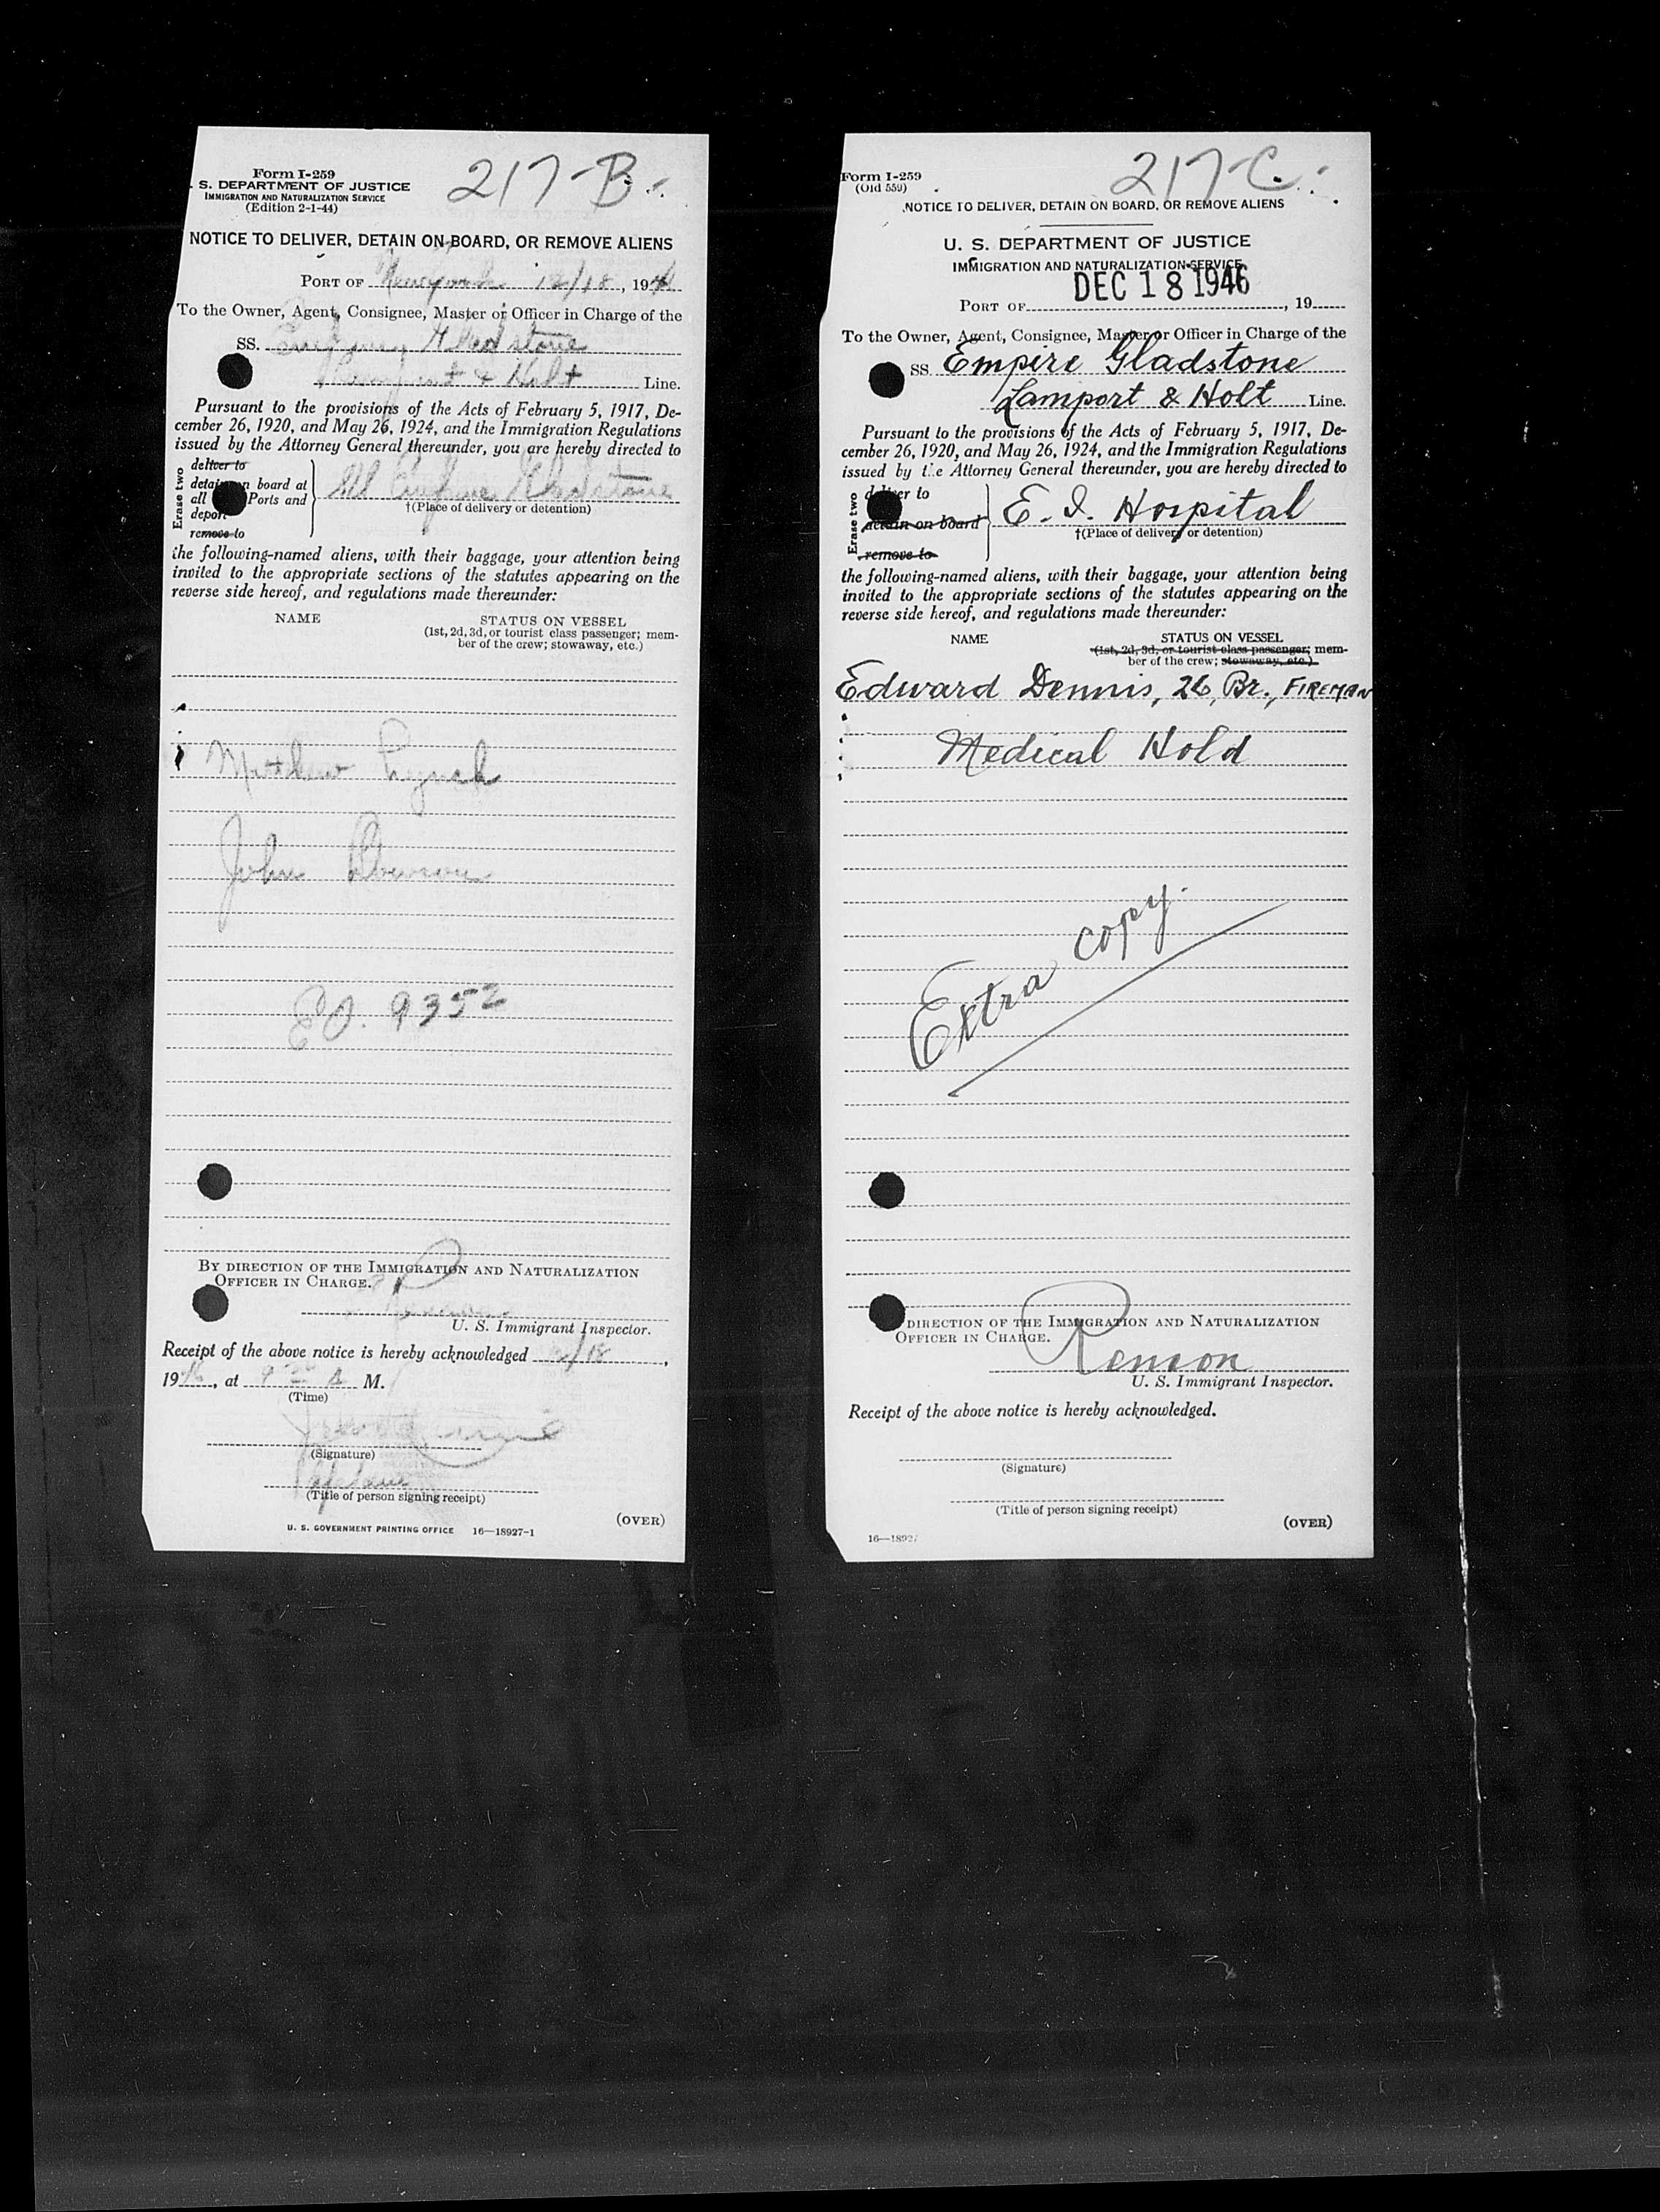 217-B
Form I-259
S. DEPARTMENT OF JUSTICE
IMMIGRATION AND NATURALIZATION SERVICE
(Edition 2-1-44)
NOTICE TO DELIVER, DETAIN ON BOARD, OR REMOVE ALIENS
PORT OF New York 12/18, 1946
To the Owner, Agent, Consignee, Master or Officer in Charge of the
SS. Empire Gladstone
Lamport & Holt Line.
Pursuant to the provisions of the Acts of February 5, 1917, De-
cember 26, 1920, and May 26, 1924, and the Immigration Regulations
issued by the Attorney General thereunder, you are hereby directed to
Erase two
deliver to
detain on board at
all Ports and
deport
remove to
SS Empire Gladstone
†(Place of delivery or detention)
the following-named aliens, with their baggage, your attention being
invited to the appropriate sections of the statutes appearing on the
reverse side hereof, and regulations made thereunder:
NAME STATUS ON VESSEL
(1st, 2d, 3d, or tourist class passenger; mem-
ber of the crew; stowaway, etc.)
Matthew Lynch
John
EO. 9352
BY DIRECTION OF THE IMMIGRATION AND NATURALIZATION
OFFICER IN CHARGE.
U. S. Immigrant Inspector.
Receipt of the above notice is hereby acknowledged 12/18,
1946, at 9 A M.
(Time)
(Signature)
Captain
(Title of person signing receipt)
(OVER)
U. S. GOVERNMENT PRINTING OFFICE 16—18927-1
217-C
Form I-259
(Old 559)
NOTICE TO DELIVER, DETAIN ON BOARD, OR REMOVE ALIENS
U. S. DEPARTMENT OF JUSTICE
IMMIGRATION AND NATURALIZATION SERVICE
DEC 18 1946
PORT OF , 19
To the Owner, Agent, Consignee, Master or Officer in Charge of the
SS. Empire Gladstone
Lamport & Holt Line.
Pursuant to the provisions of the Acts of February 5, 1917, De-
cember 26, 1920, and May 26, 1924, and the Immigration Regulations
issued by the Attorney General thereunder, you are hereby directed to
Erase two
deliver to
detain on board
remove to
E. I. Hospital
†(Place of delivery or detention)
the following-named aliens, with their baggage, your attention being
invited to the appropriate sections of the statutes appearing on the
reverse side hereof, and regulations made thereunder:
NAME STATUS ON VESSEL
(1st, 2d, 3d, or tourist class passenger; mem-
ber of the crew; stowaway, etc.)
Edward Dennis, 26, Br., FIREMAN
Medical Hold
Extra copy.
DIRECTION OF THE IMMIGRATION AND NATURALIZATION
OFFICER IN CHARGE.
U. S. Immigrant Inspector.
Receipt of the above notice is hereby acknowledged.
(Signature)
(Title of person signing receipt)
(OVER)
16—18927